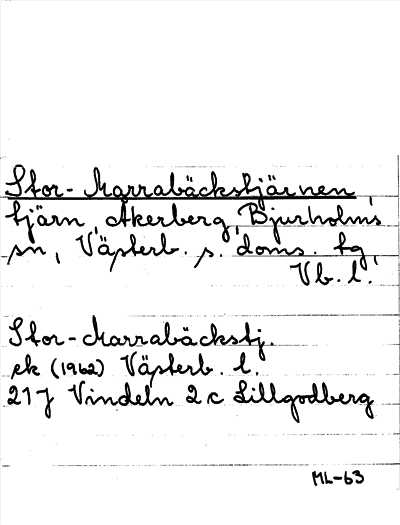 Stor-Marrabäckstjärnen,
tjärn, Åkerberg, Bjurholms
sn, Västerb. s. doms. tg,
Vb. l.
Stor-Marrabäckstj.
ek (1962) Västerb. l.
21J Vindeln 2c Lillgodberg
ML-63